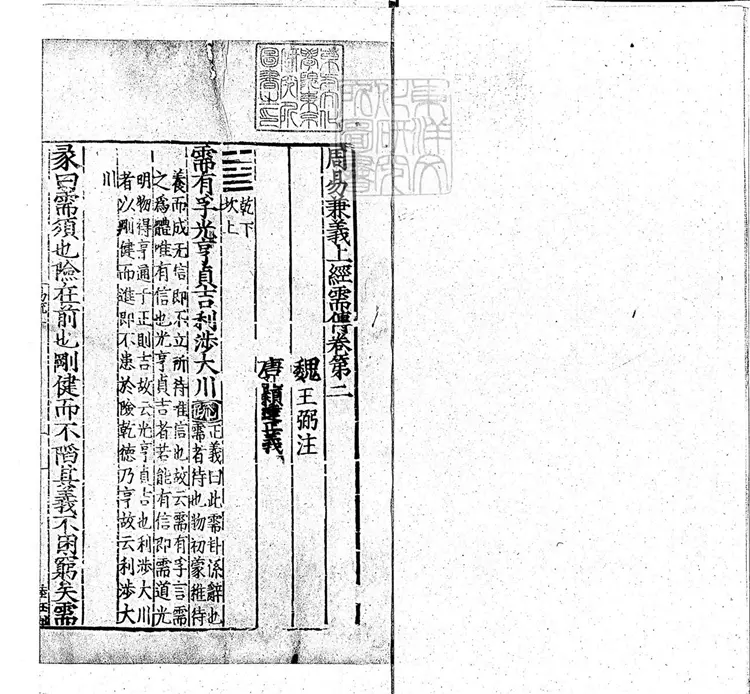 東洋文
化研究
所圖書
東方文化
學院東京
研究所
圖書之印
周易兼義上經需傳卷第二
魏王弼注
唐孔穎達正義
乾下
坎上
需有孚光亨貞吉利渉大川疏正義曰此需卦係辭也
需者待也物初蒙稚待
養而成无信即不立所待唯信也故云需有孚言需
之為體唯有信也光亨貞吉者若能有信即需道光
明物得亨通于正則吉故云光亨貞吉也利渉大川
者以剛健而進即不患於險乾德乃亨故云利渉大
川
彖曰需須也險在前也剛健而不陷其義不困窮矣需